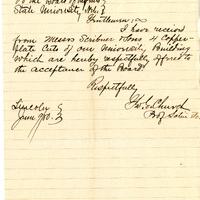 To the Board of
State University
Gentlemen
I have received
from Messrs Scribner & Sons 4 Copper-
plate Cuts of our University Building
which are hereby respectfully offered to
the acceptance of the Board.
Respectfully,
Lincoln
June
Church
Prof